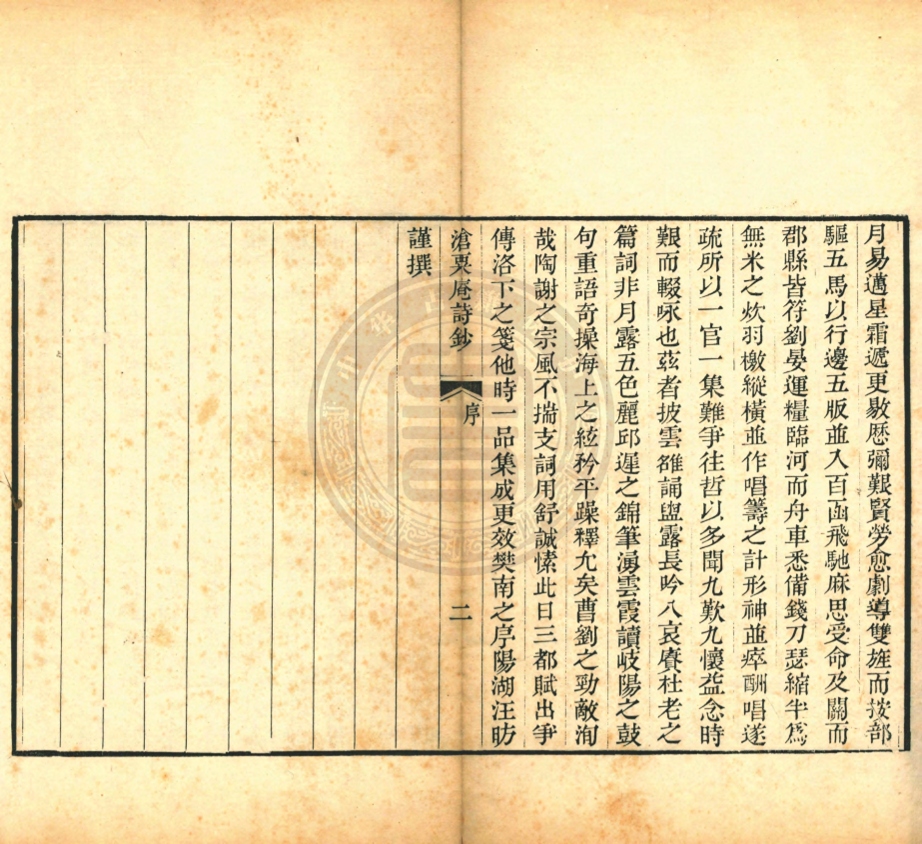 月易邁星霜遞更敭歴彌艱賢勞愈劇導雙旌而按部
驅五馬以行邊五版並入百函飛馳麻思受命及關而
郡縣皆符劉晏運糧臨河而舟車悉備錢刀瑟縮半爲
無米之炊羽檄縱橫並作唱籌之計形神並瘁酬唱遂
疏所以一官一集難爭往哲以多聞九歎九懷益念時
艱而輟咏也茲者披雲雒誦盥露長吟八哀賡杜老之
篇詞非月露五色麗邱遲之錦筆湧雲霞讀岐陽之鼓
句重語奇操海上之絃矜平躁釋允矣曹劉之勁敵洵
哉陶謝之宗風不揣支詞用舒誠愫此日三都賦出爭
傳洛下之箋他時一品集成更效樊南之序陽湖汪昉
滄粟庵詩鈔
序
二
謹撰